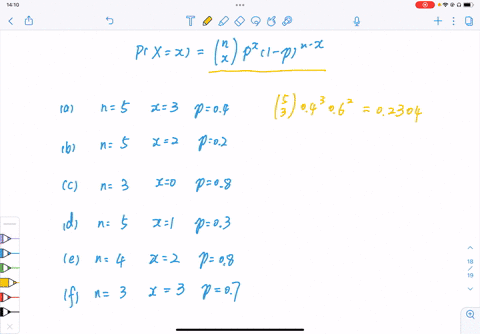 14:10
Pr(X=x) = (n x) p^x (1-p)^{n-x}
(a) n=5 x=3 p=0.4 (5 3) 0.4^3 0.6^2 = 0.2304
(b) n=5 x=2 p=0.2
(c) n=3 x=0 p=0.8
(d) n=5 x=1 p=0.3
(e) n=4 x=2 p=0.8
(f) n=3 x=3 p=0.7
18
/
19